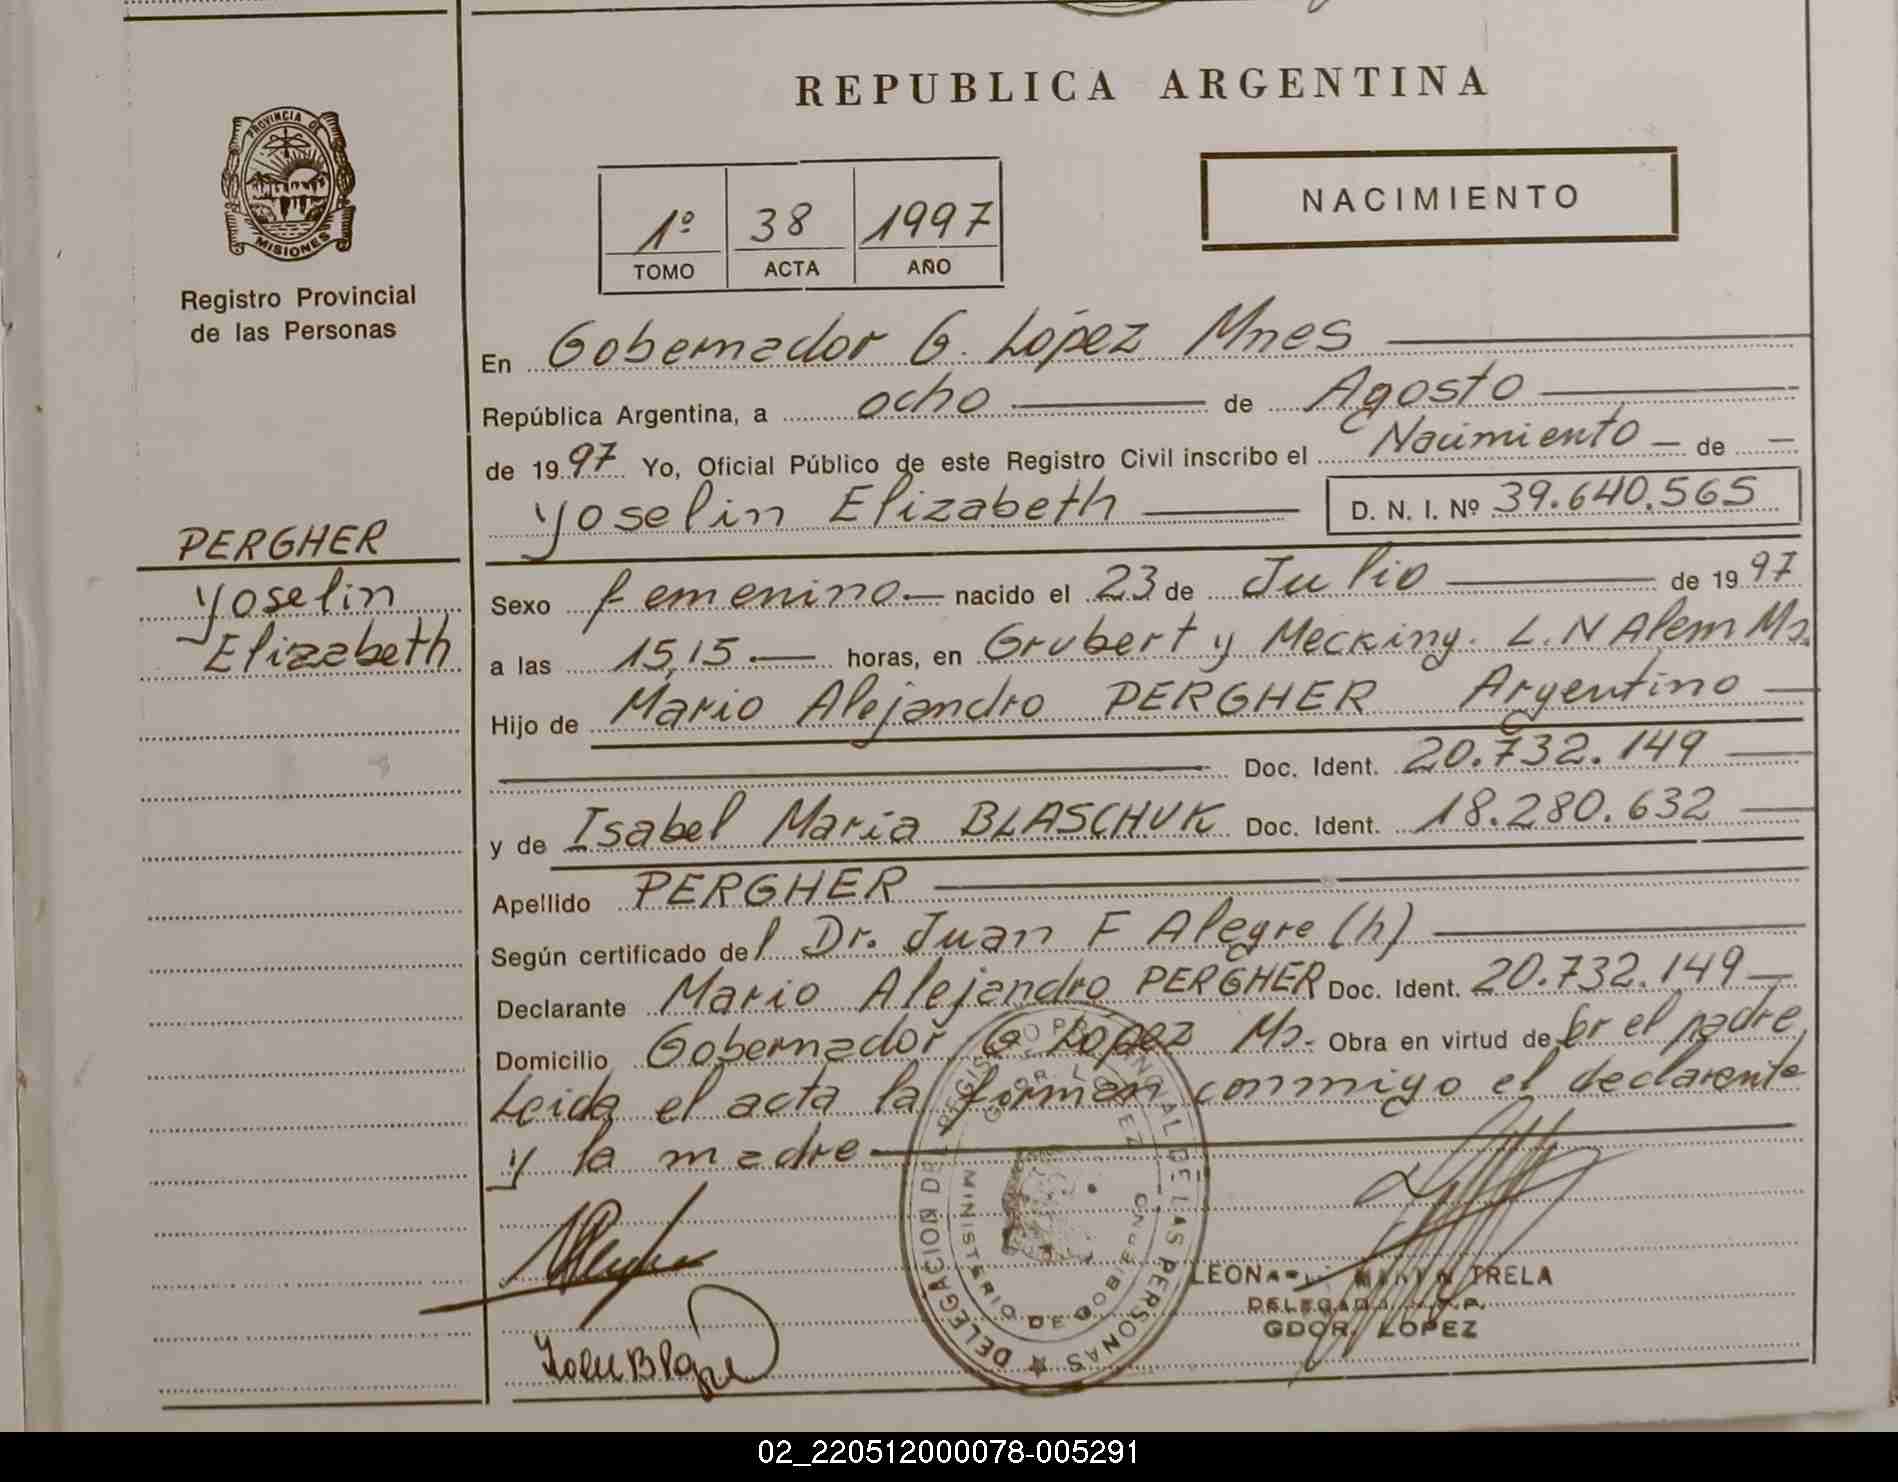 REPUBLICA ARGENTINA
PROVINCIA DE
MISIONES
Registro Provincial
de las Personas
1º 38 1997
TOMO ACTA AÑO
NACIMIENTO
En Gobernador G. López Mnes
República Argentina, a ocho de Agosto
de 1997 Yo, Oficial Público de este Registro Civil inscribo el Nacimiento de
Yoselin Elizabeth D. N. I. Nº 39.640.565
PERGHER
Yoselin
Elizabeth
Sexo femenino nacido el 23 de Julio de 1997
a las 15,15 horas, en Grubert y Mecking. L. N Alem Ms.
Hijo de Mario Alejandro PERGHER Argentino
Doc. Ident. 20.732.149
y de Isabel Maria BLASCHUK Doc. Ident. 18.280.632
Apellido PERGHER
Según certificado del Dr. Juan F Alegre (h)
Declarante Mario Alejandro PERGHER Doc. Ident. 20.732.149
Domicilio Gobernador G. López Ms. Obra en virtud de Sr el padre
Leida el acta la firman conmigo el declarente
y la madre
DELEGACION DE REGISTRO PROVINCIAL DE LAS PERSONAS
GDOR. LOPEZ
MINISTERIO DE GOBIERNO
TRELA
DELEGADO
GDOR. LOPEZ
02_220512000078-005291